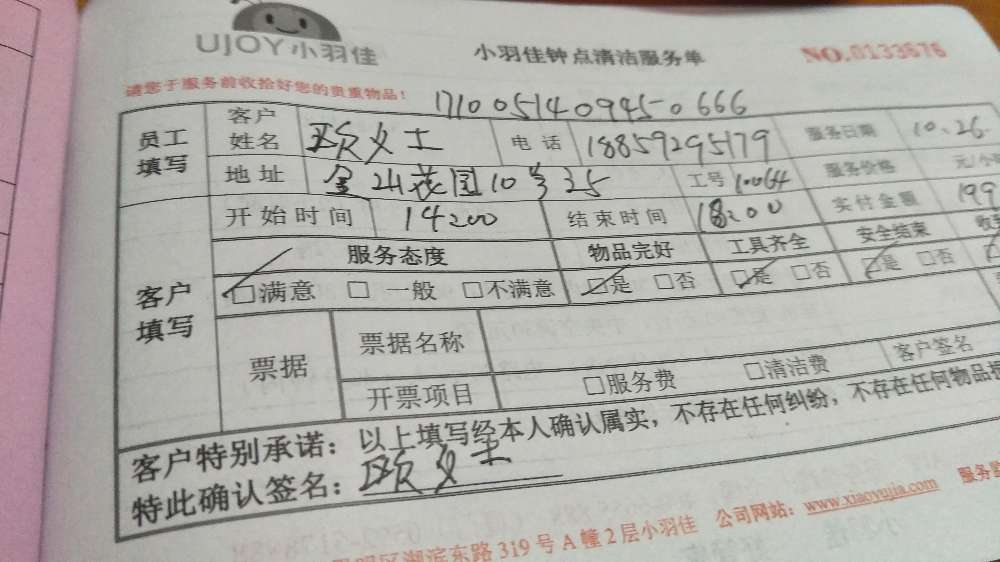 UJOY小羽佳 小羽佳钟点清洁服务单 NO.0133676
请您于服务前收拾好您的贵重物品！
171005140945-0666
员工填写 客户姓名 欧女士 电话 18859295179 服务日期 10.26.
地址 金山花园10号35 工号 10064 服务价格 元/小
客户填写 开始时间 14:00 结束时间 18:00 实付金额 199
服务态度 物品完好 工具齐全 安全结束
☑满意 □一般 □不满意 ☑是 □否 ☑是 □否 ☑是 □否
票据 票据名称
开票项目 □服务费 □清洁费 客户签名
客户特别承诺：以上填写经本人确认属实，不存在任何纠纷，不存在任何物品
特此确认签名：欧女士
明区湖滨东路319号A幢2层小羽佳 公司网站：www.xiaoyujia.com 服务